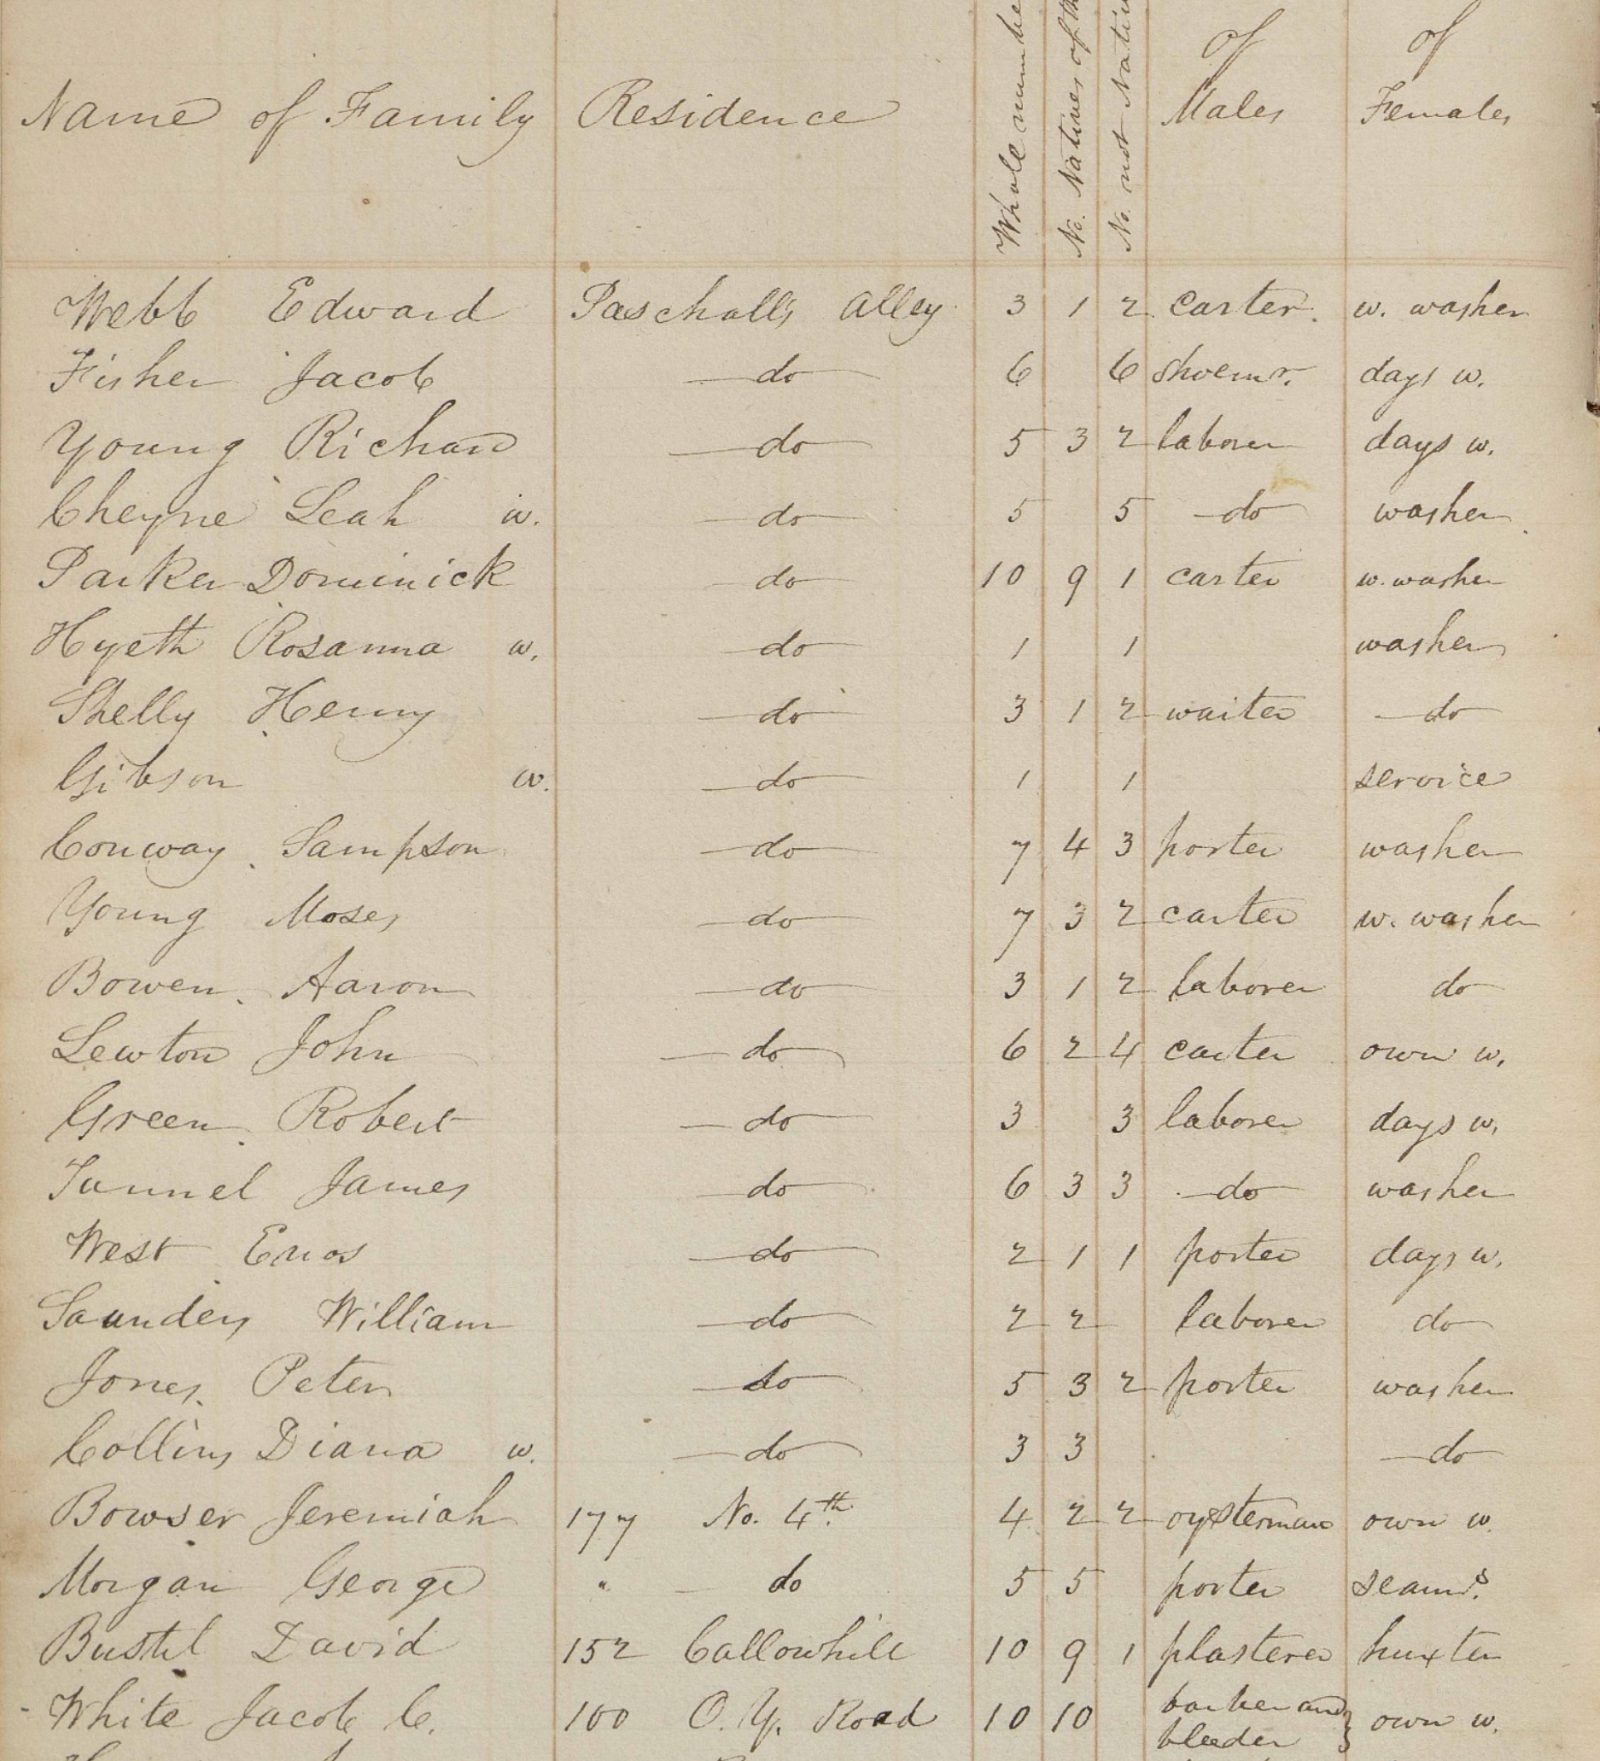 Name of Family Residence Whole numbe No. Natives of th No. not Nativ of Males of Females
Webb Edward Paschall's Alley 3 1 2 carter. w. washer
Fisher Jacob do 6 6 shoemr. days w.
Young Richard do 5 3 2 laborer days w.
Cheyne Leah w. do 5 5 do washer
Parker Dominick do 10 9 1 carter w. washer
Hyeth Rosanna w. do 1 1 washer
Shelly Henry do 3 1 2 waiter do
Gibson w. do 1 1 service
Conway Sampson do 7 4 3 porter washer
Young Moses do 7 3 2 carter w. washer
Bowen Aaron do 3 1 2 laborer do
Lewton John do 6 2 4 carter own w.
Green Robert do 3 3 laborer days w.
Tunnel James do 6 3 3 do washer
West Enos do 2 1 1 porter days w.
Saunders William do 2 2 laborer do
Jones Peter do 5 3 2 porter washer
Collins Diana w. do 3 3 do
Bowser Jeremiah 177 No. 4th. 4 2 2 oysterman own w.
Morgan George " do 5 5 porter seams.
Bustil David 152 Callowhill 10 9 1 plasterer huxter
White Jacob C. 100 O. Y. Road 10 10 barber and bleeder } own w.